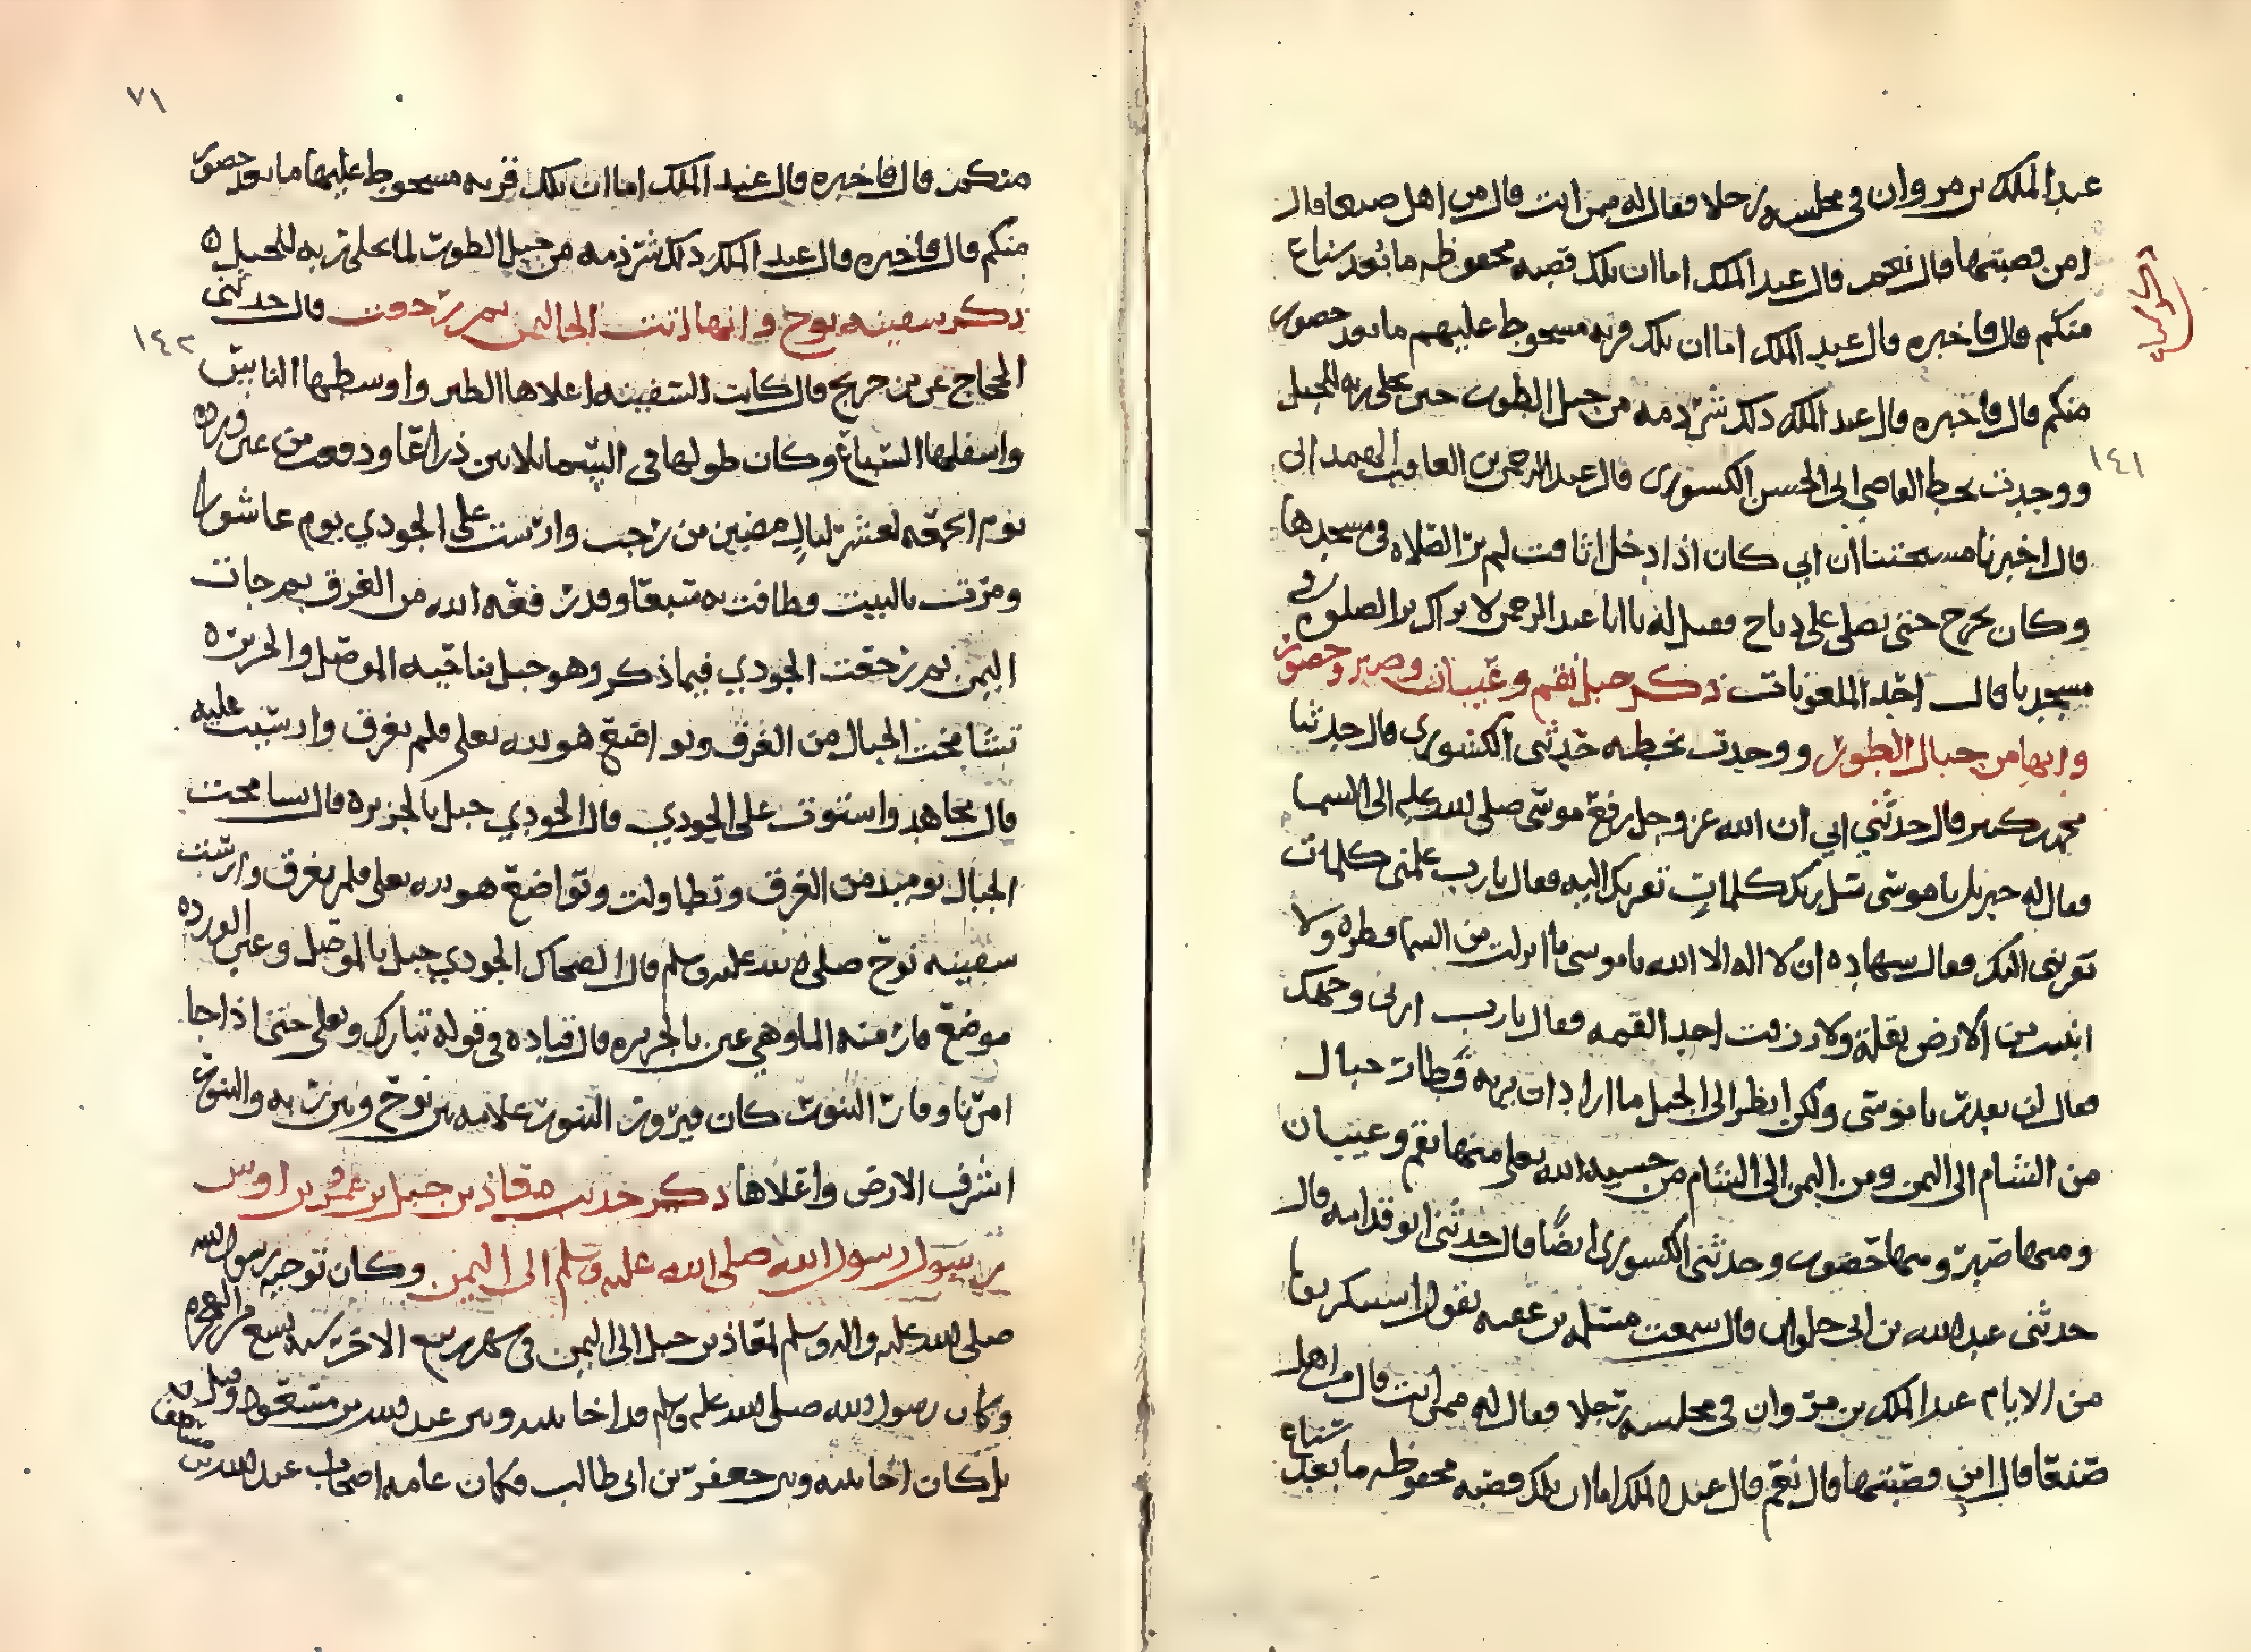 عبد الملك بن مروان في مجلسه رجلا فقال له ممن انت قال من اهل صنعا قال
امن قصبتها قال نعم قال عبد الملك اما ان تلك قصبه محفوظه ما بعد سناع
منكم قال فاخبره قال عبد الملك اما ان تلك قريه مسخوط عليهم ما بعد حضور
منكم قال فاخبره قال عبد الملك ذلك شرذمه من جبل الطور حين تجلى ربه للجبل
١٤١
ووجدت بخط القاضي ابي الحسن الكسوري قال عبد الرحمن
قال اخبرنا ان ابي كان اذا دخل اثافت لم ير الصلاه في مسجدها
وكان يخرج حتى يصلي على فقيل له يا ابا عبد الرحمن لا نراك ترا الصلوه في
مسجدنا قال احد الملعونات ذكر جبل نقم وعيبان وصبر وحضور
وانها من جبال الطور ووجدت بخطه حدثني الكشوري قال حدثنا
محمد بن كثير قال حدثني ابي ان الله عز وجل رفع موسى صلى الله عليه الى السما
فقال له جبريل يا موسى سل ربك كلمات تقربك اليه فقال يا رب علمني كلمات
تقربني اليك فقال شهاده ان لا اله الا الله يا موسى ما انزلت من السما قطره ولا
انبت من الارض بقله ولا رزقت احد القمه فقال يا رب ارني وجهك
فقال لن تقدر يا موسى ولكن انظر الى الجبل ما اراد ان يريه فطارت جبال
من الشام الى اليمن ومن اليمن الى الشام من خشيه الله تعلى منها نقم وعيبان
ومنها صبر ومنها حضور وحدثني الكسوري ايضا قال حدثني ابو قدامه قال
حدثني عبد الله بن ابي قال سمعت بن عقبه يقول
من الايام عبد الملك بن مروان في مجلسه رجلا فقال له ممن انت قال من اهل
صنعا قال امن قصبتها قال نعم قال عبد الملك اما ان تلك قصبه محفوظه ما بعد سناع
٧١
منكم قال فاخبره قال عبد الملك اما ان تلك قريه مسخوط عليها ما بعد حضور
منكم قال فاخبره قال عبد الملك ذلك شرذمه من جبل الطور لما تجلى ربه للجبل
ذكر سفينه نوح وانها اتت الى اليمن ثم رجعت قال حدثني
١٤٢
الحجاج عن بن جريج قال كانت السفينه اعلاها الطير واوسطها الناس
واسفلها السباع وكان طولها في السما ثلاثين ذراعا ودفعت من عين ورده
يوم الجمعه لعشر ليال مضين من رجب وارست على الجودي يوم عاشورا
ومرت بالبيت فطافت به سبعا وقد رفعه الله من الغرق ثم جات
اليمن ثم رجعت الجودي فيما ذكر وهو جبل بناحيه الموصل والجزيره
تشامخت الجبال من الغرق وتواضع هو لله تعلى فلم يغرق وارسيت عليه
قال مجاهد واستوت على الجودي قال الجودي جبل بالجزيره قال تشامخت
الجبال يوميذ من الغرق وتطاولت وتواضع هو لله تعلى فلم يغرق وارست
سفينه نوح صلى الله عليه وسلم قال الضحاك الجودي جبل بالموصل وعين الورده
موضع فار منه الما وهي عين بالجزيره قال قتاده في قوله تبارك وتعلى حتى اذا جا
امرنا وفار التنور كان التنور علامه بين نوح وبين ربه والتنور
اشرف الارض واعلاها ذكر حديث معاذ بن جبل بن عمرو بن اوس
رسول رسول الله صلى الله عليه وسلم الى اليمن وكان توجيه رسول الله
صلى الله عليه واله وسلم لمعاذ بن جبل الى اليمن في شهر ربيع الاخر سنه تسع من
وكان رسول الله صلى الله عليه وسلم قد اخا بينه وبين عبد الله بن مسعود وقيل
بل كان اخا بينه وبين جعفر بن ابي طالب فكان عامه اصحاب عبد الله بن